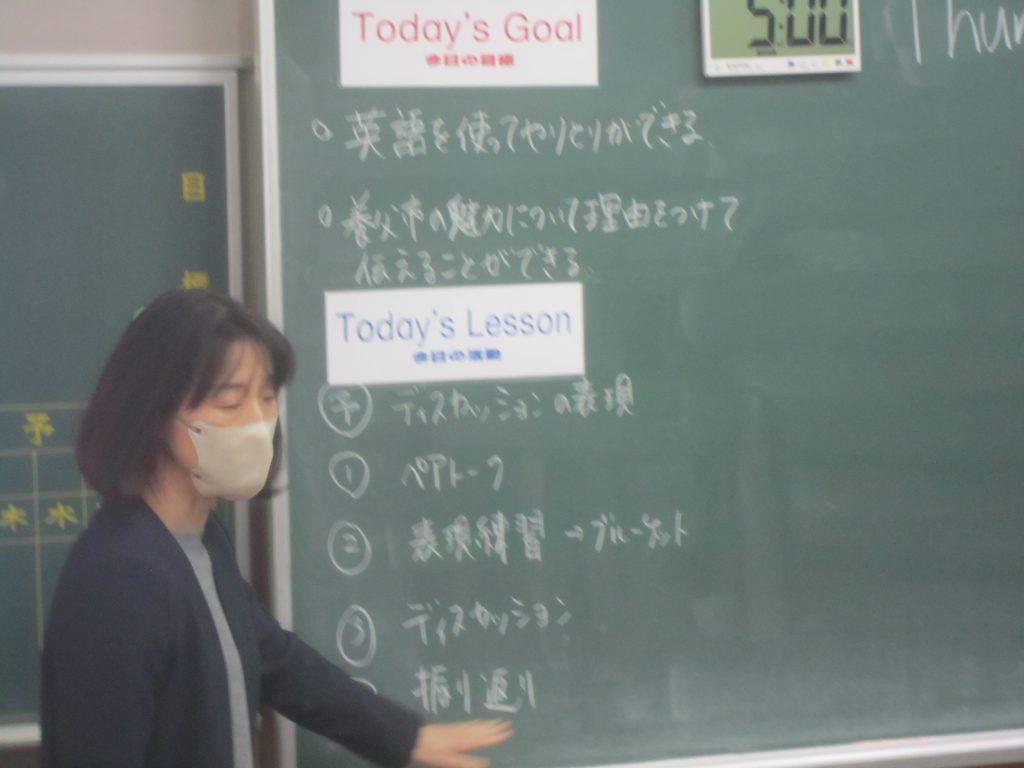 Today's Goal
今日の目標
5:00
Thur
○ 英語を使ってやりとりができる
○ 養父市の魅力について理由をつけて
伝えることができる
Today's Lesson
今日の活動
予 ディスカッションの表現
① ペアトーク
② 表現練習 → ブルーケット
③ ディスカッション
振り返り
目
予
木 水